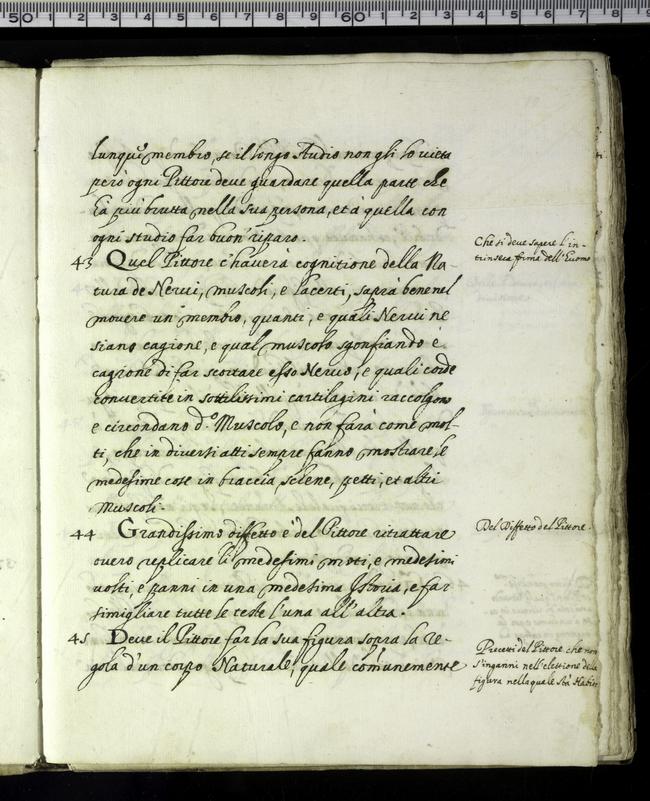 lunqu᷉ membro, se il longo studio non gli lo vieta
però ogni Pittore deve guardare quella parte che
hà più brutta nella sua persona, et à quella con
ogni studio far buon' riparo.
43 Quel Pittore c'haverà cognitione della Na-
tura de Nervi, muscoli, e lacerti, saprà bene nel
movere un' membro, quanti, e quali Nervi ne
siano cagione, e qual muscolo sgonfiando è
cagione di far scortare esso Nervo, e quali corde
convertite in sottilissimi cartilagini raccolgono
e circondano d.º Muscolo, e non farà come mol-
ti, che in diversi atti sempre fanno mostrare, le
medesime cose in braccia, schene, petti, et altri
Muscoli.
44 Grandissimo diffetto è del Pittore ritrattare
overo replicare li medesimi moti, e medesimi
volti, e panni in una medesima Istoria, e far
simigliare tutte le teste l'una all'altra.
45 Deve il Pittore far la sua figura sopra la re-
gola d'un corpo Naturale, quale com̃unemente
Che si deve sapere l'in-
trinseca forma dell'Huomo
Del Diffetto del Pittore.
Precetti del Pittore che non
s'inganni nell'elettione della
figura nella quale stà